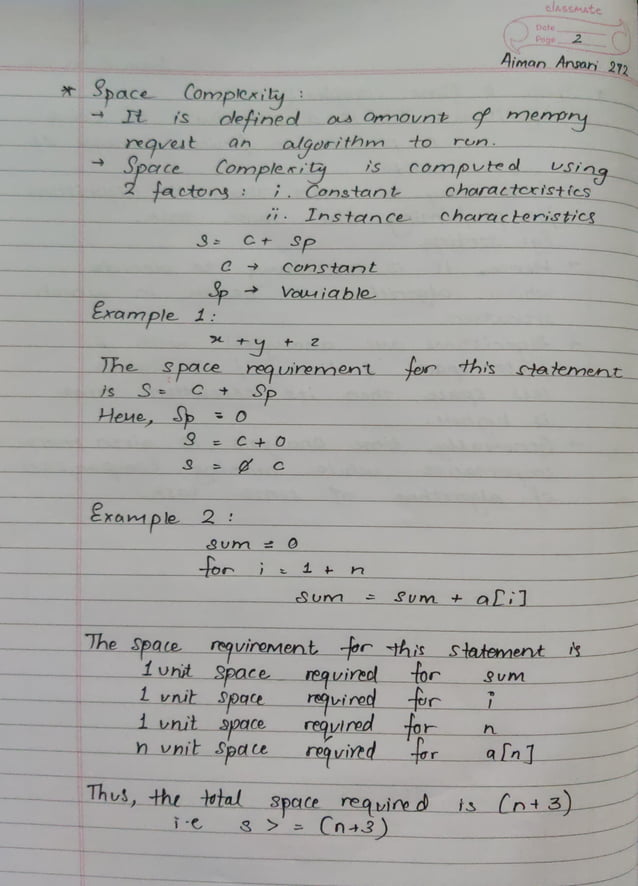 classmate
Date
Page 2
Aiman Ansari 272
* Space Complexity :
→ It is defined as amount of memory
request an algorithm to run.
→ Space Complexity is computed using
2 factors : i. Constant characteristics
ii. Instance characteristics
S = C + Sp
C → constant
Sp → variable
Example 1 :
x + y + z
The space requirement for this statement
is S = C + Sp
Here, Sp = 0
S = C + 0
S = C
Example 2 :
sum = 0
for i = 1 + n
sum = sum + a[i]
The space requirement for this statement is
1 unit space required for sum
1 unit space required for i
1 unit space required for n
n unit space required for a[n]
Thus, the total space required is (n+3)
i.e S > = (n+3)